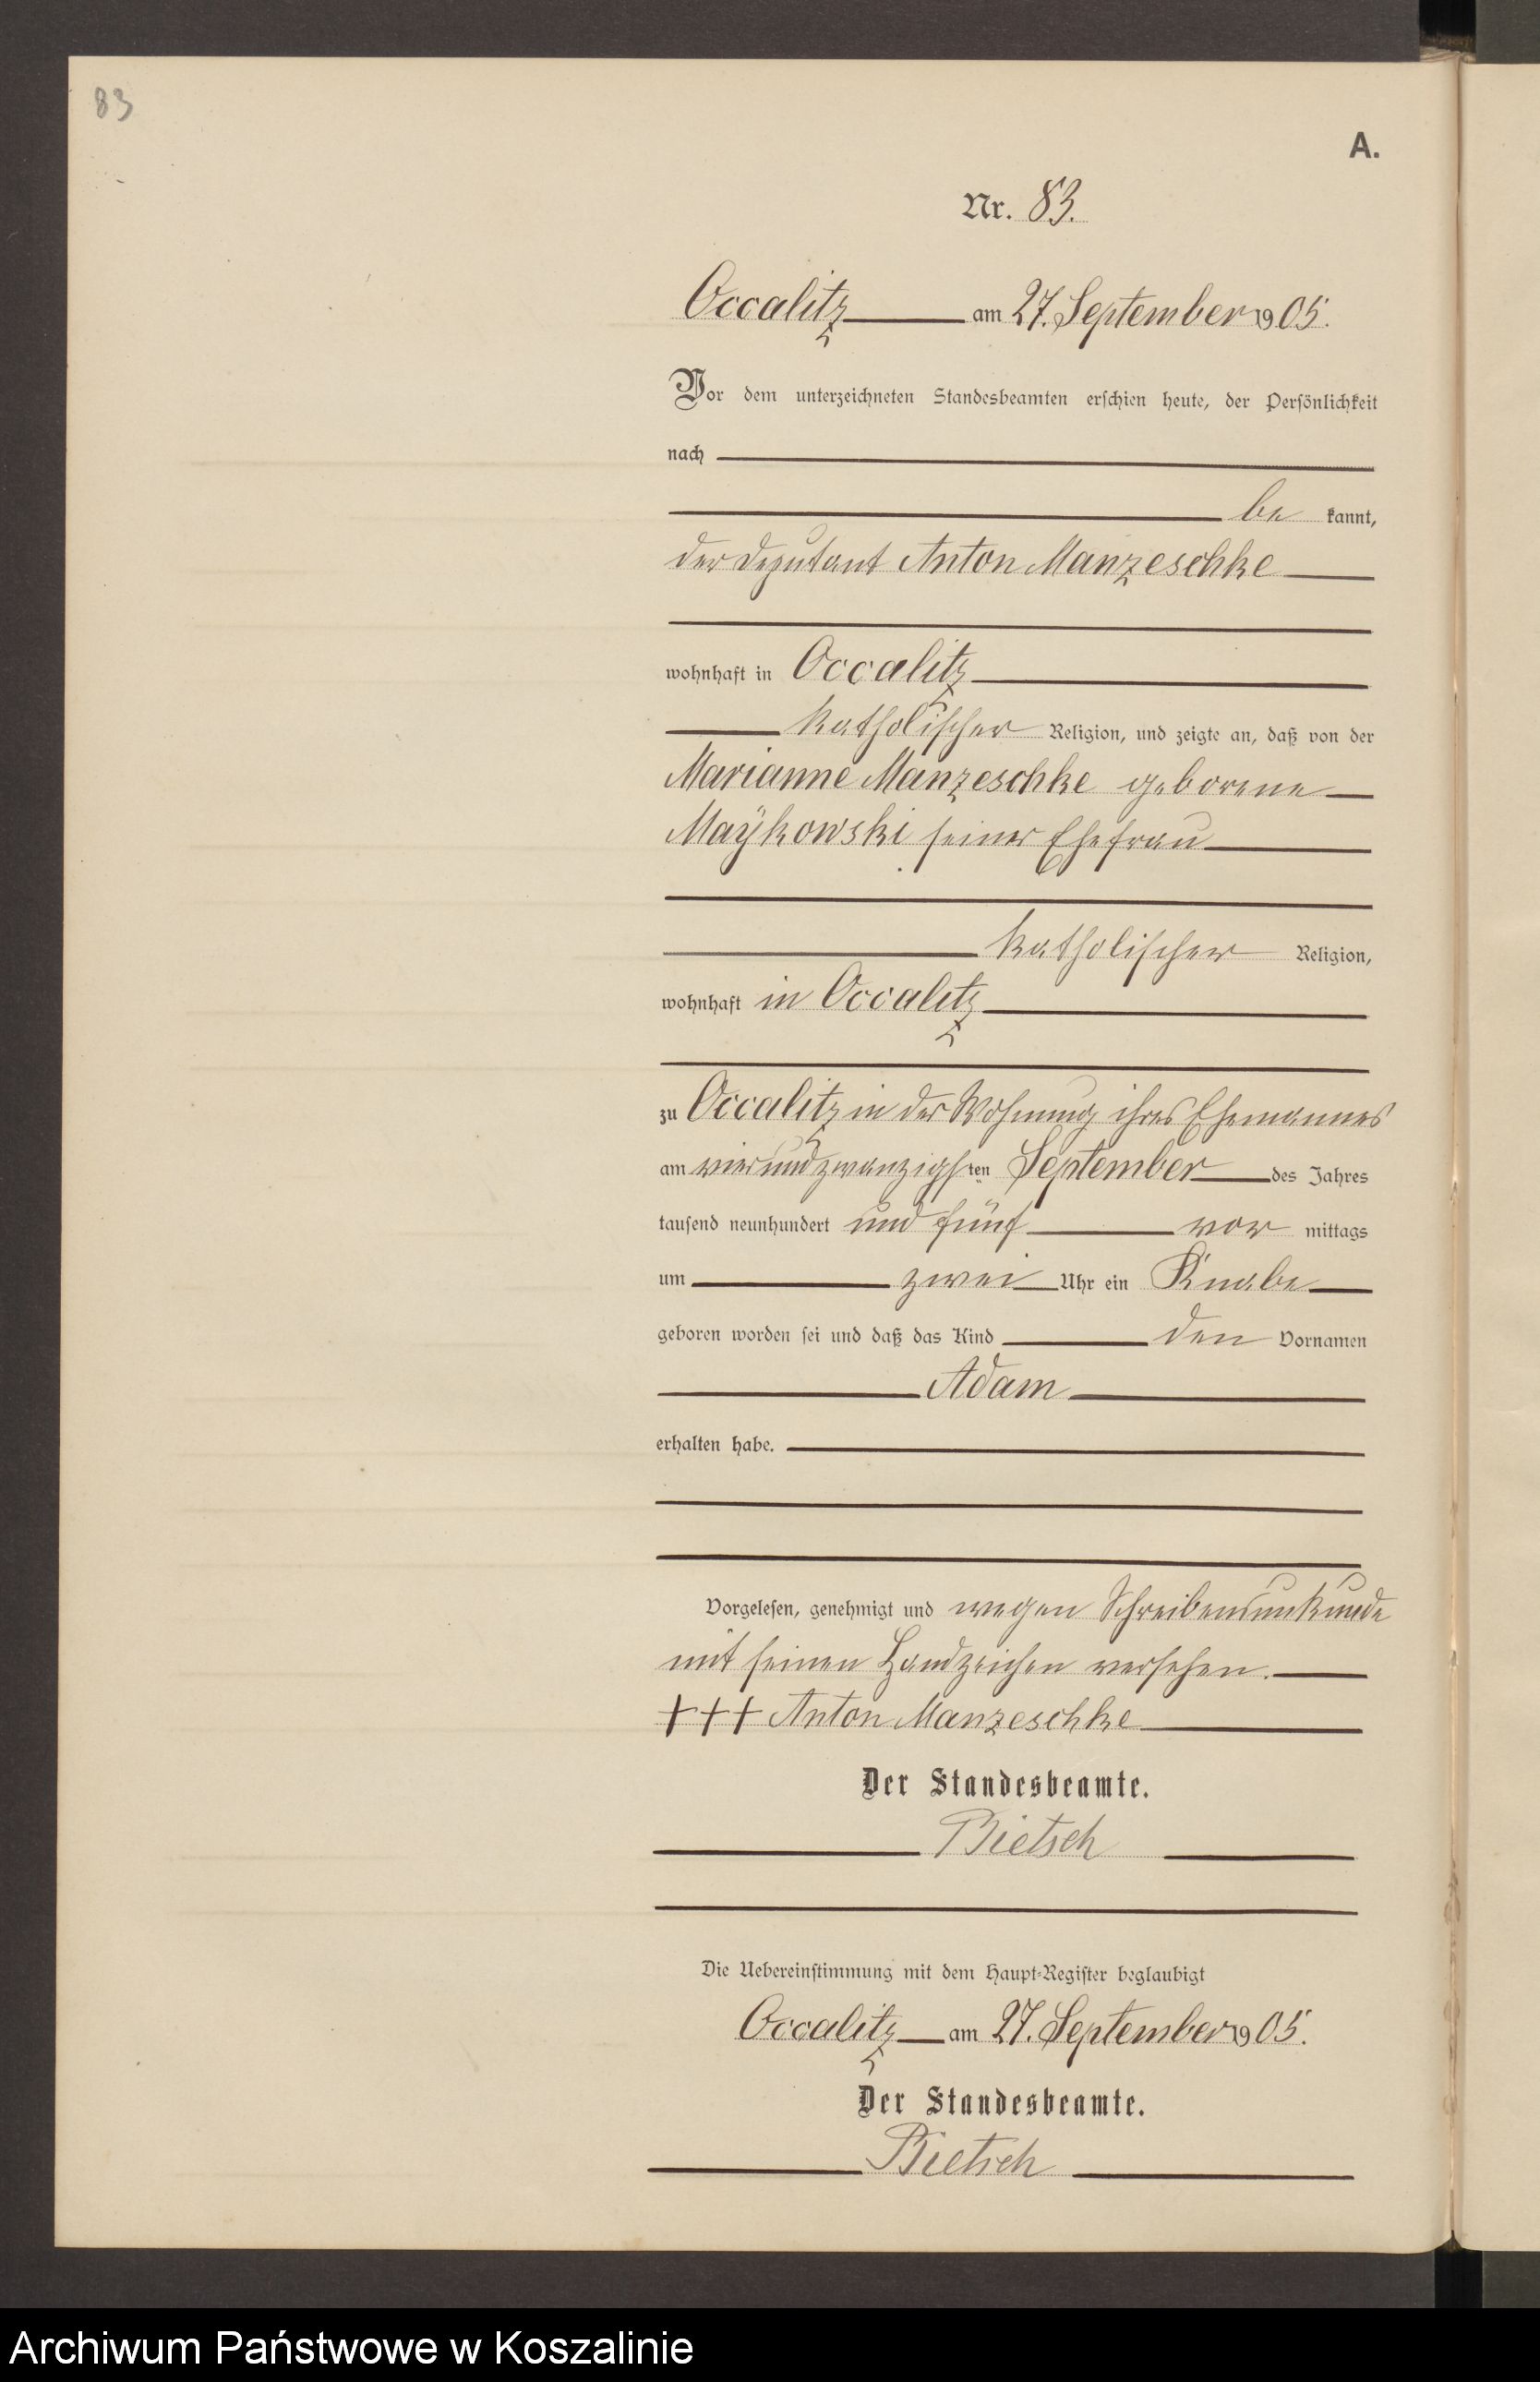 83
A.
Nr. 83.
Occalitz am 27. September 1905.
Vor dem unterzeichneten Standesbeamten erschien heute, der Persönlichkeit
nach
be kannt,
der Deputant Anton Manzeschke
wohnhaft in Occalitz
katholischer Religion, und zeigte an, daß von der
Marianne Manzeschke geborene
Maÿkowski seiner Ehefrau
katholischer Religion,
wohnhaft in Occalitz
zu Occalitz in der Wohnung ihres Ehemannes
am vierundzwanzigsten September des Jahres
tausend neunhundert und fünf vor mittags
um zwei Uhr ein Knabe
geboren worden sei und daß das Kind den Vornamen
Adam
erhalten habe.
Vorgelesen, genehmigt und wegen Schreibensunkunde
mit seinen Handzeichen versehen.
+++ Anton Manzeschke
Der Standesbeamte.
Bietsch
Die Uebereinstimmung mit dem Haupt-Register beglaubigt
Occalitz am 27. September 1905.
Der Standesbeamte.
Bietsch
Archiwum Państwowe w Koszalinie